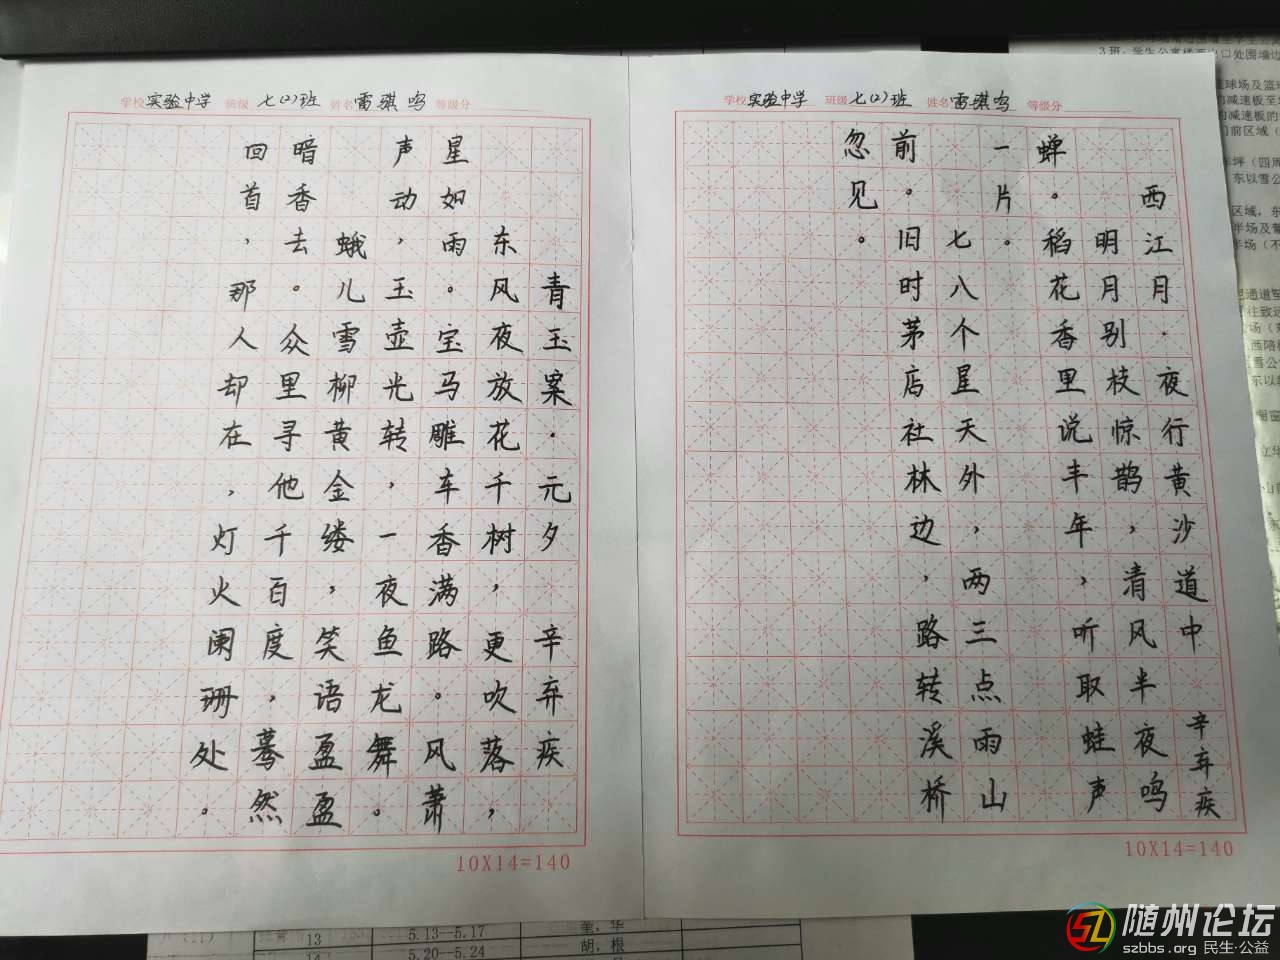 学校 实验中学 班级 七(2)班 姓名 雷琪鸣 等级分
青玉案·元夕 辛弃疾
东风夜放花千树，更吹落，
星如雨。宝马雕车香满路。风萧
声动，玉壶光转，一夜鱼龙舞。
蛾儿雪柳黄金缕，笑语盈盈
暗香去。众里寻他千百度，蓦然
回首，那人却在，灯火阑珊处。
10X14=140
学校 实验中学 班级 七(2)班 姓名 雷琪鸣 等级分
西江月·夜行黄沙道中 辛弃疾
明月别枝惊鹊，清风半夜鸣
蝉。稻花香里说丰年，听取蛙声
一片。
七八个星天外，两三点雨山
前。旧时茅店社林边，路转溪桥
忽见。
10X14=140
13 5.13--5.17
14 5.20--5.24 胡，根
随州论坛
szbbs.org 民生·公益